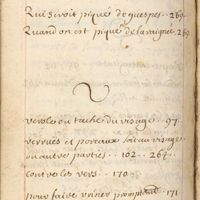 Qui seroit piqué de guespes .. 269
Quand on est piqué de laraignée. 269
V
verole ou tache du visage .. 97.
verrues et poreaux soit au visage
ou autres parties .. 102 .. 264.
contre les vers .. 170
pour faire uriner promptement .. 171